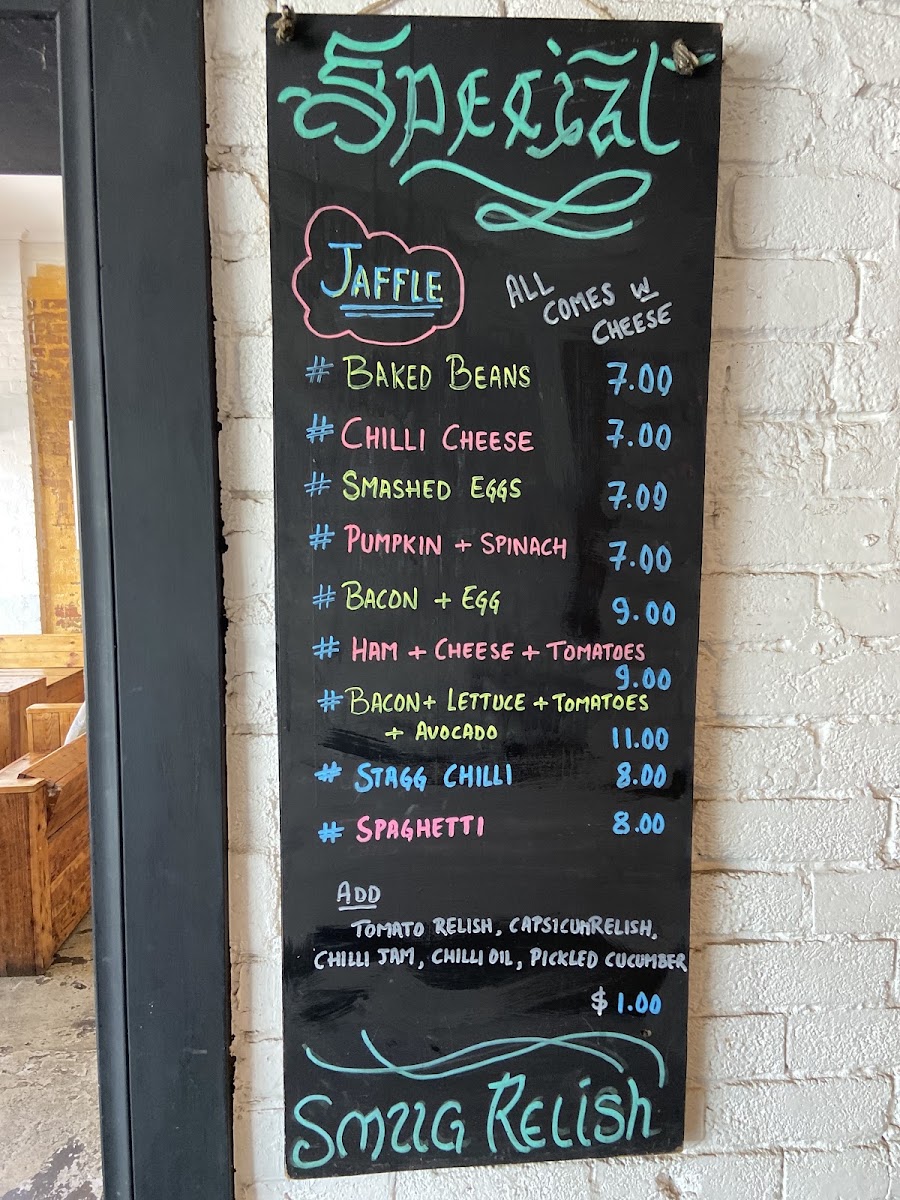 Special
JAFFLE
ALL
COMES W
CHEESE
# BAKED BEANS 7.00
# CHILLI CHEESE 7.00
# SMASHED EGGS 7.00
# PUMPKIN + SPINACH 7.00
# BACON + EGG 9.00
# HAM + CHEESE + TOMATOES
9.00
# BACON+ LETTUCE + TOMATOES
+ AVOCADO 11.00
# STAGG CHILLI 8.00
# SPAGHETTI 8.00
ADD
TOMATO RELISH, CAPSICUM RELISH,
CHILLI JAM, CHILLI OIL, PICKLED CUCUMBER
$ 1.00
SMUG RELISH